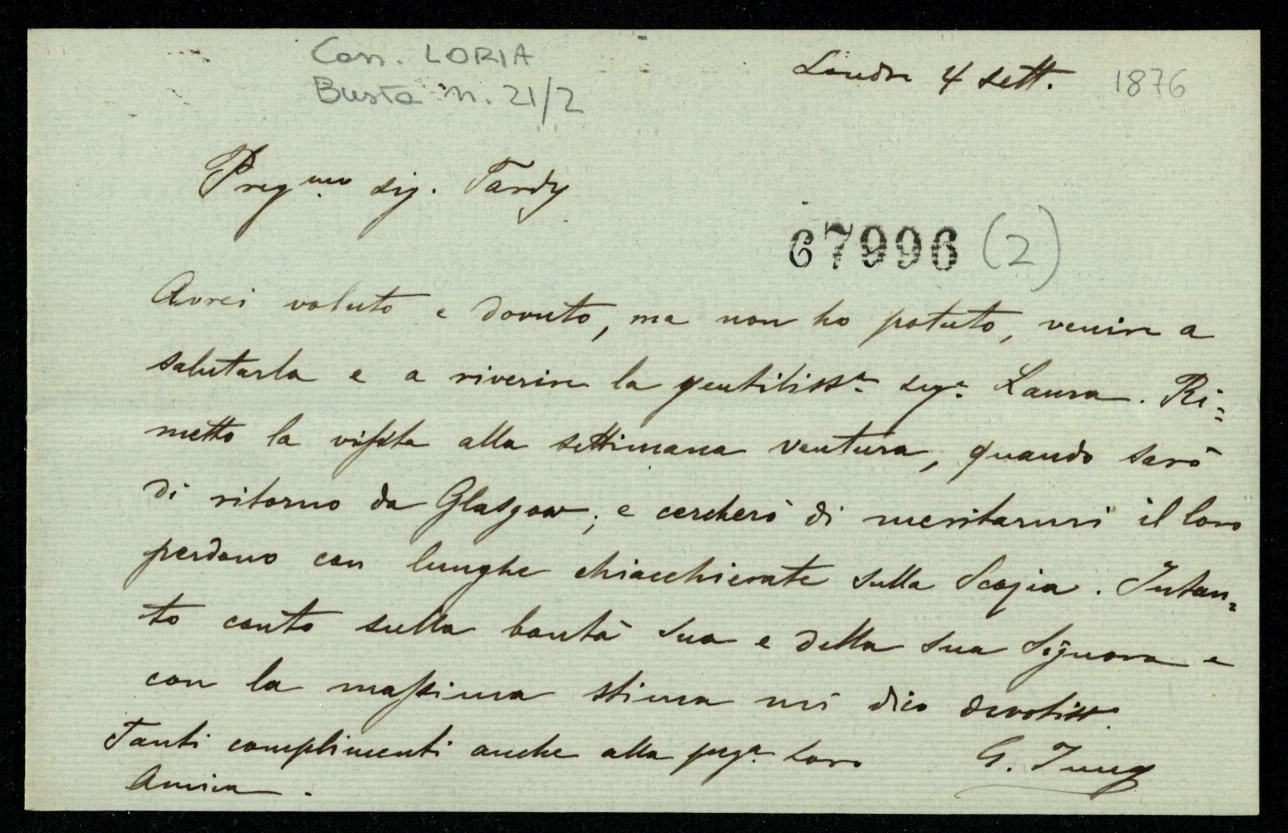 Cass. LORIA
Busta n. 21/2
Londra 4 sett. 1876
Preg.mo sig. Tardy
67996 (2)
Avrei voluto e dovuto, ma non ho potuto, venire a
salutarla e a riverire la gentiliss.a sig.a Laura. Ri=
metto la visita alla settimana ventura, quando sarò
di ritorno da Glasgow; e cercherò di meritarmi il loro
perdono con lunghe chiacchierate sulla Scozia. Intan=
to conto sulla bontà sua e della sua Signora e
con la massima stima mi dico devotiss.
Tanti complimenti anche alla preg.a loro G. Jung
Amica.